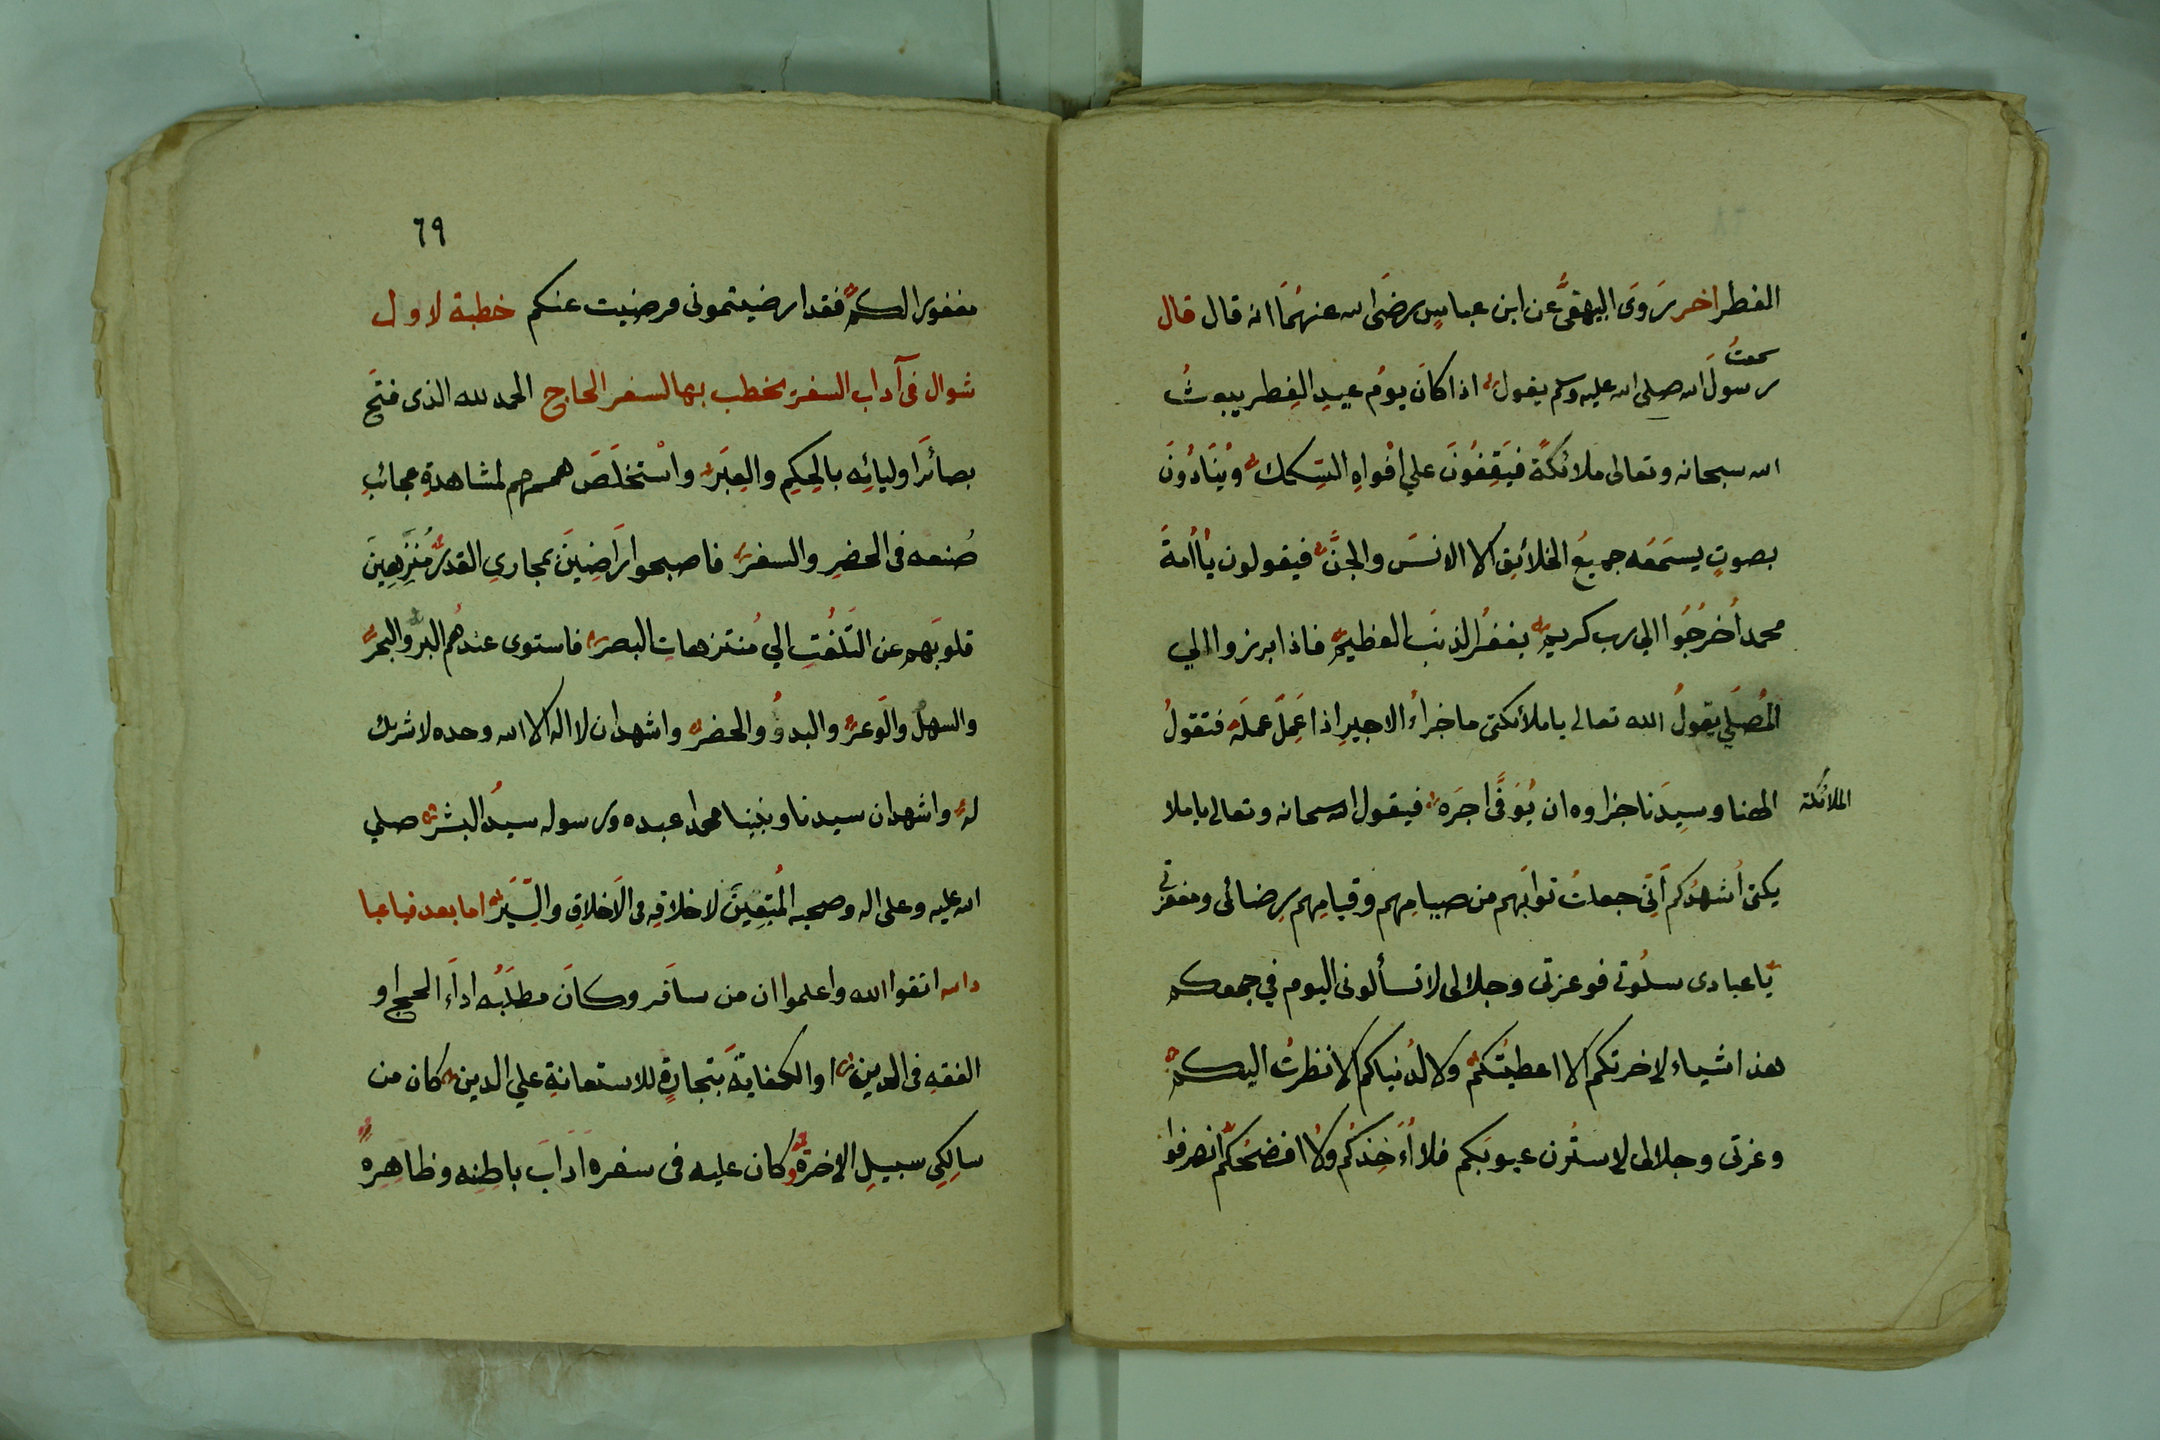 الفطر اخر رَوَى البيهقيُّ عن ابن عباسٍ رضَى الله عنهُمَا انه قال قال
سمعتُ
رسولَ الله صلى الله عليه وسلم يقول اذا كانَ يومُ عيدِ الفِطرِ يبوثُ
الله سبحانه وتعالى ملائكةً فيَقِفُونَ علي اَفْواهِ السِّكك ويُنَادُونَ
بصوتٍ يسمَعَه جميعُ الخلائِقِ الا الانسَ والجنَّ فيقولون ياأُمةَ
محمد اُخرُجُوا الي رب كريم يغفرُ الذنبَ العظيم فاذا برزوا الي
المُصلي يقولُ الله تعالى ياملأئكتى ماجزاءُ الاجيرِ اذا عَمِلَ عملَهُ فتقولُ
الملائكة
الهنا وسيِدَنا جزاوه ان يُوَفَّى اجرَه فيقول الله سبحانه وتعالى ياملا
يكتى اُشهدُكم اَنِّى جعلتُ ثوابَهم من صيامِهم وقيامِهم رِضائى ومغفرتى
ياعبادى سلُونى فوعزتى وجلالى لا تسألونى اليوم في جمعكم
هذا شياء لاخرتكم الا اعطيتُكم ولا لدُنياكم الا نظرتُ اليكم
وعزتى وجلالى لاسترُن عيوبَكم فلا اُءَخِذكُم ولا افضحُكم انصرفوا
٦٩
مغفورا لكم فقد ارضيتمونى ورضيت عنكم خطبة لاول
شوال فى آداب السفر يخطب بها لسفر الحاج الحمد لله الذى فتَح
بصائرَ اوليائِه بالحِكِم والعِبَر واسْتخلَصَ هممهم لمشاهدةِ عجائبِ
صُنعه فى الحضرِ والسفر فاصبحوا رَاضِينَ بمجارِي القدر مُنَزِّهِينَ
قلوبَهم عن التَلَفُتِ الي مُنتزهاتِ البصر فاستوى عندهُم البر والبحر
والسهل والوَعر والبدوُ والحضر واشهد ان لا اله الا الله وحده لا شريك
له واشهد ان سيدنا ونبينا محمدا عبده ورسوله سيدُ البشر صلي
الله عليه وعلى اله وصحبه المُتبِعِينَ لاخلاقِه فى الاَخلاقِ والسِّيَر اما بعد فياعبا
دالله اتقوا الله واعلموا ان من سافَر وكانَ مطلَبُه اداَءَ الحج او
الفقهِ فى الدين او الكفايةَ بتجارةٍ للاستعانةِ علي الدين كان من
سالِكِي سبيلِ الاخرة وكان عليه فى سفره اَدَابَ باطِنِه وظاهِرِه